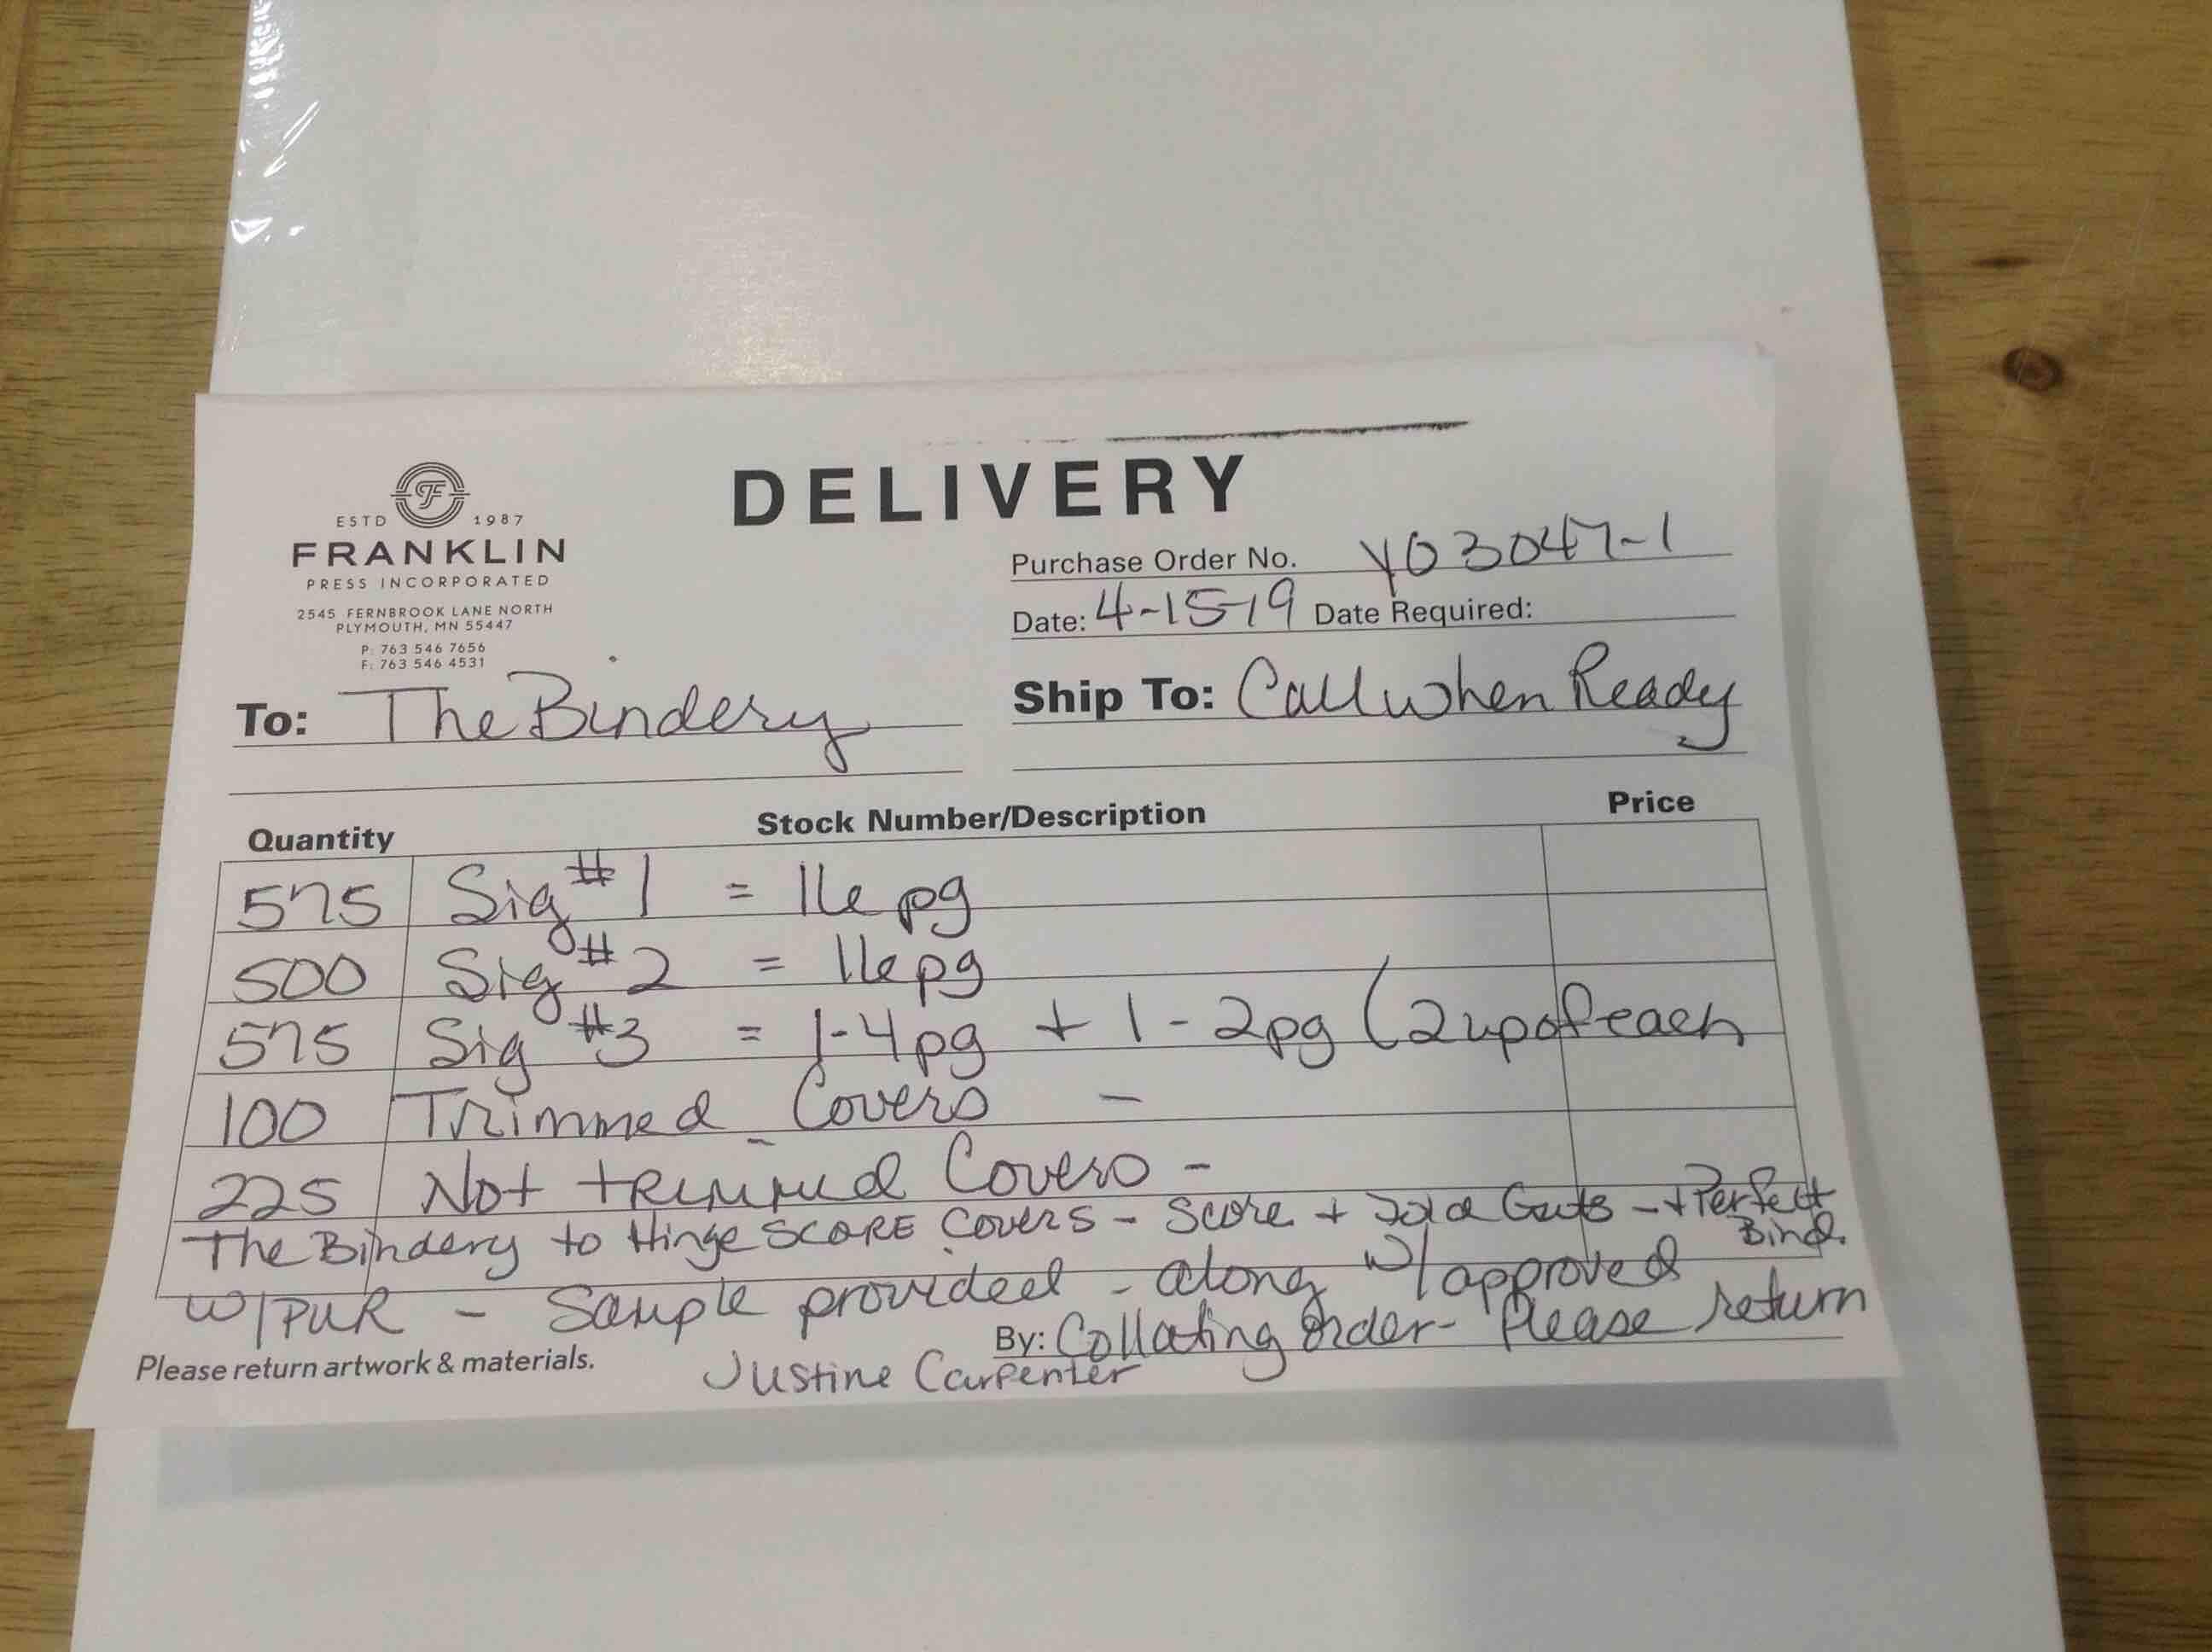 DELIVERY
ESTD 1987
FRANKLIN
PRESS INCORPORATED
2545 FERNBROOK LANE NORTH
PLYMOUTH, MN 55447
P: 763 546 7656
F: 763 546 4531
Purchase Order No. Y03047-1
Date: 4-15-19 Date Required:
To: The Bindery
Ship To: Call when Ready
Quantity Stock Number/Description Price
575 Sig #1 = 16 pg
500 Sig #2 = 16 pg
575 Sig #3 = 1-4pg + 1-2pg (2 up of each
100 Trimmed Covers -
225 Not trimmed Covers -
The Bindery to Hinge SCORE COVERS - Score + Fold Guts - + Perfect Bind.
W/PUR - Sample provided - along w/ approved
By: Collating Order - Please return
Please return artwork & materials.
Justine Carpenter